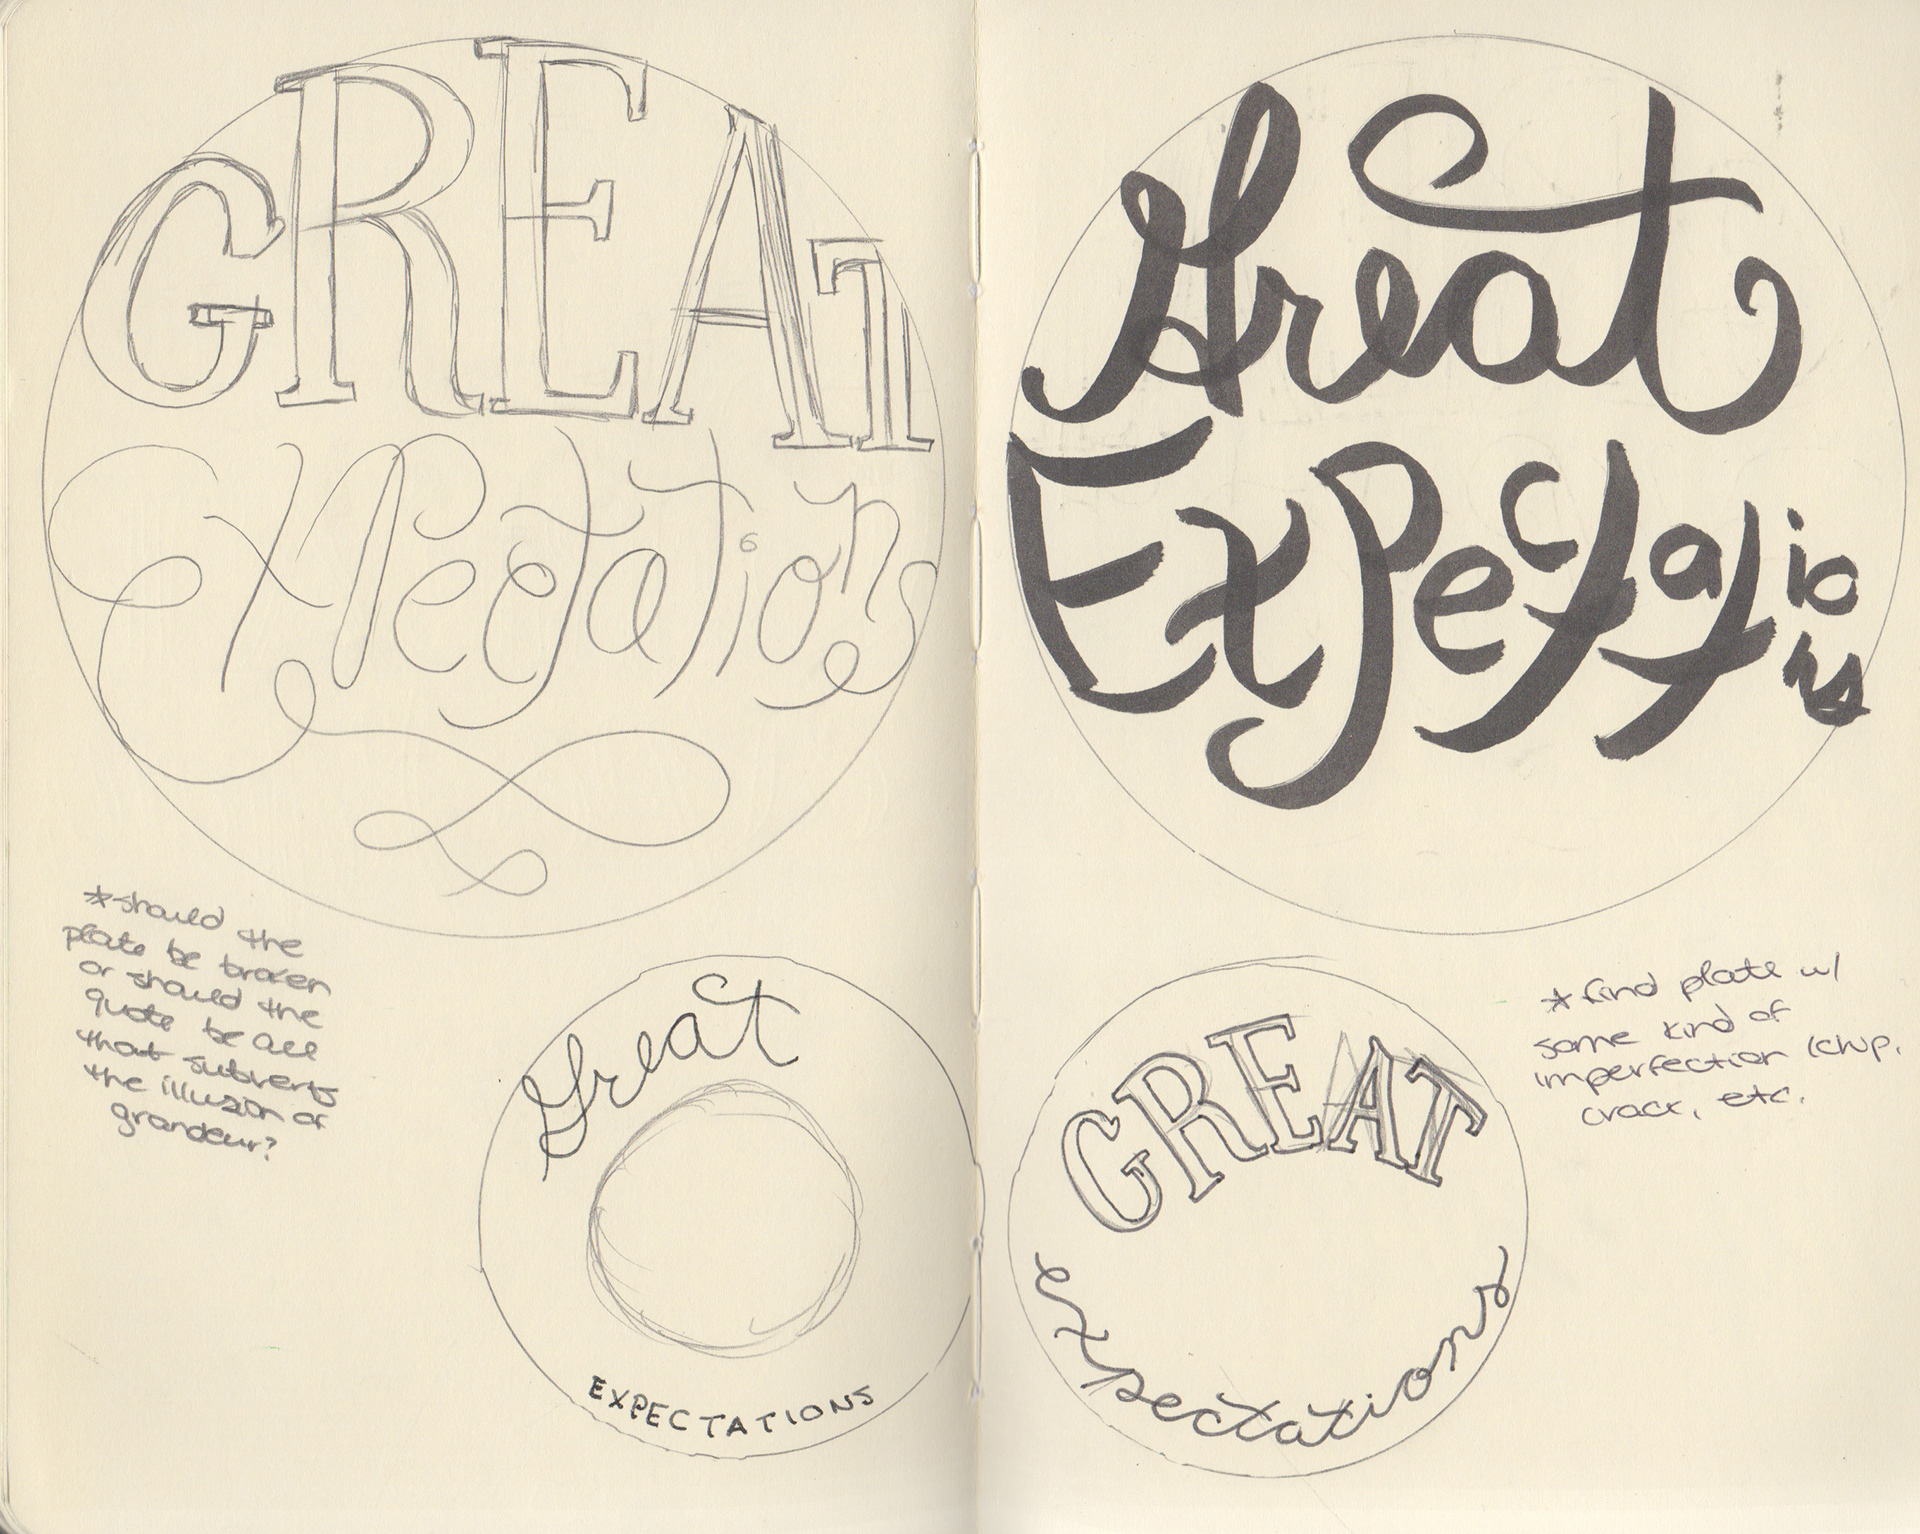 GREAT
Expectations
Great
ExPectatio
ns
*should the
plate be broken
or should the
quote be all
that subverts
the illusion of
grandeur?
Great
EXPECTATIONS
GREAT
expectations
*find plate w/
some kind of
imperfection (chip,
crack, etc.